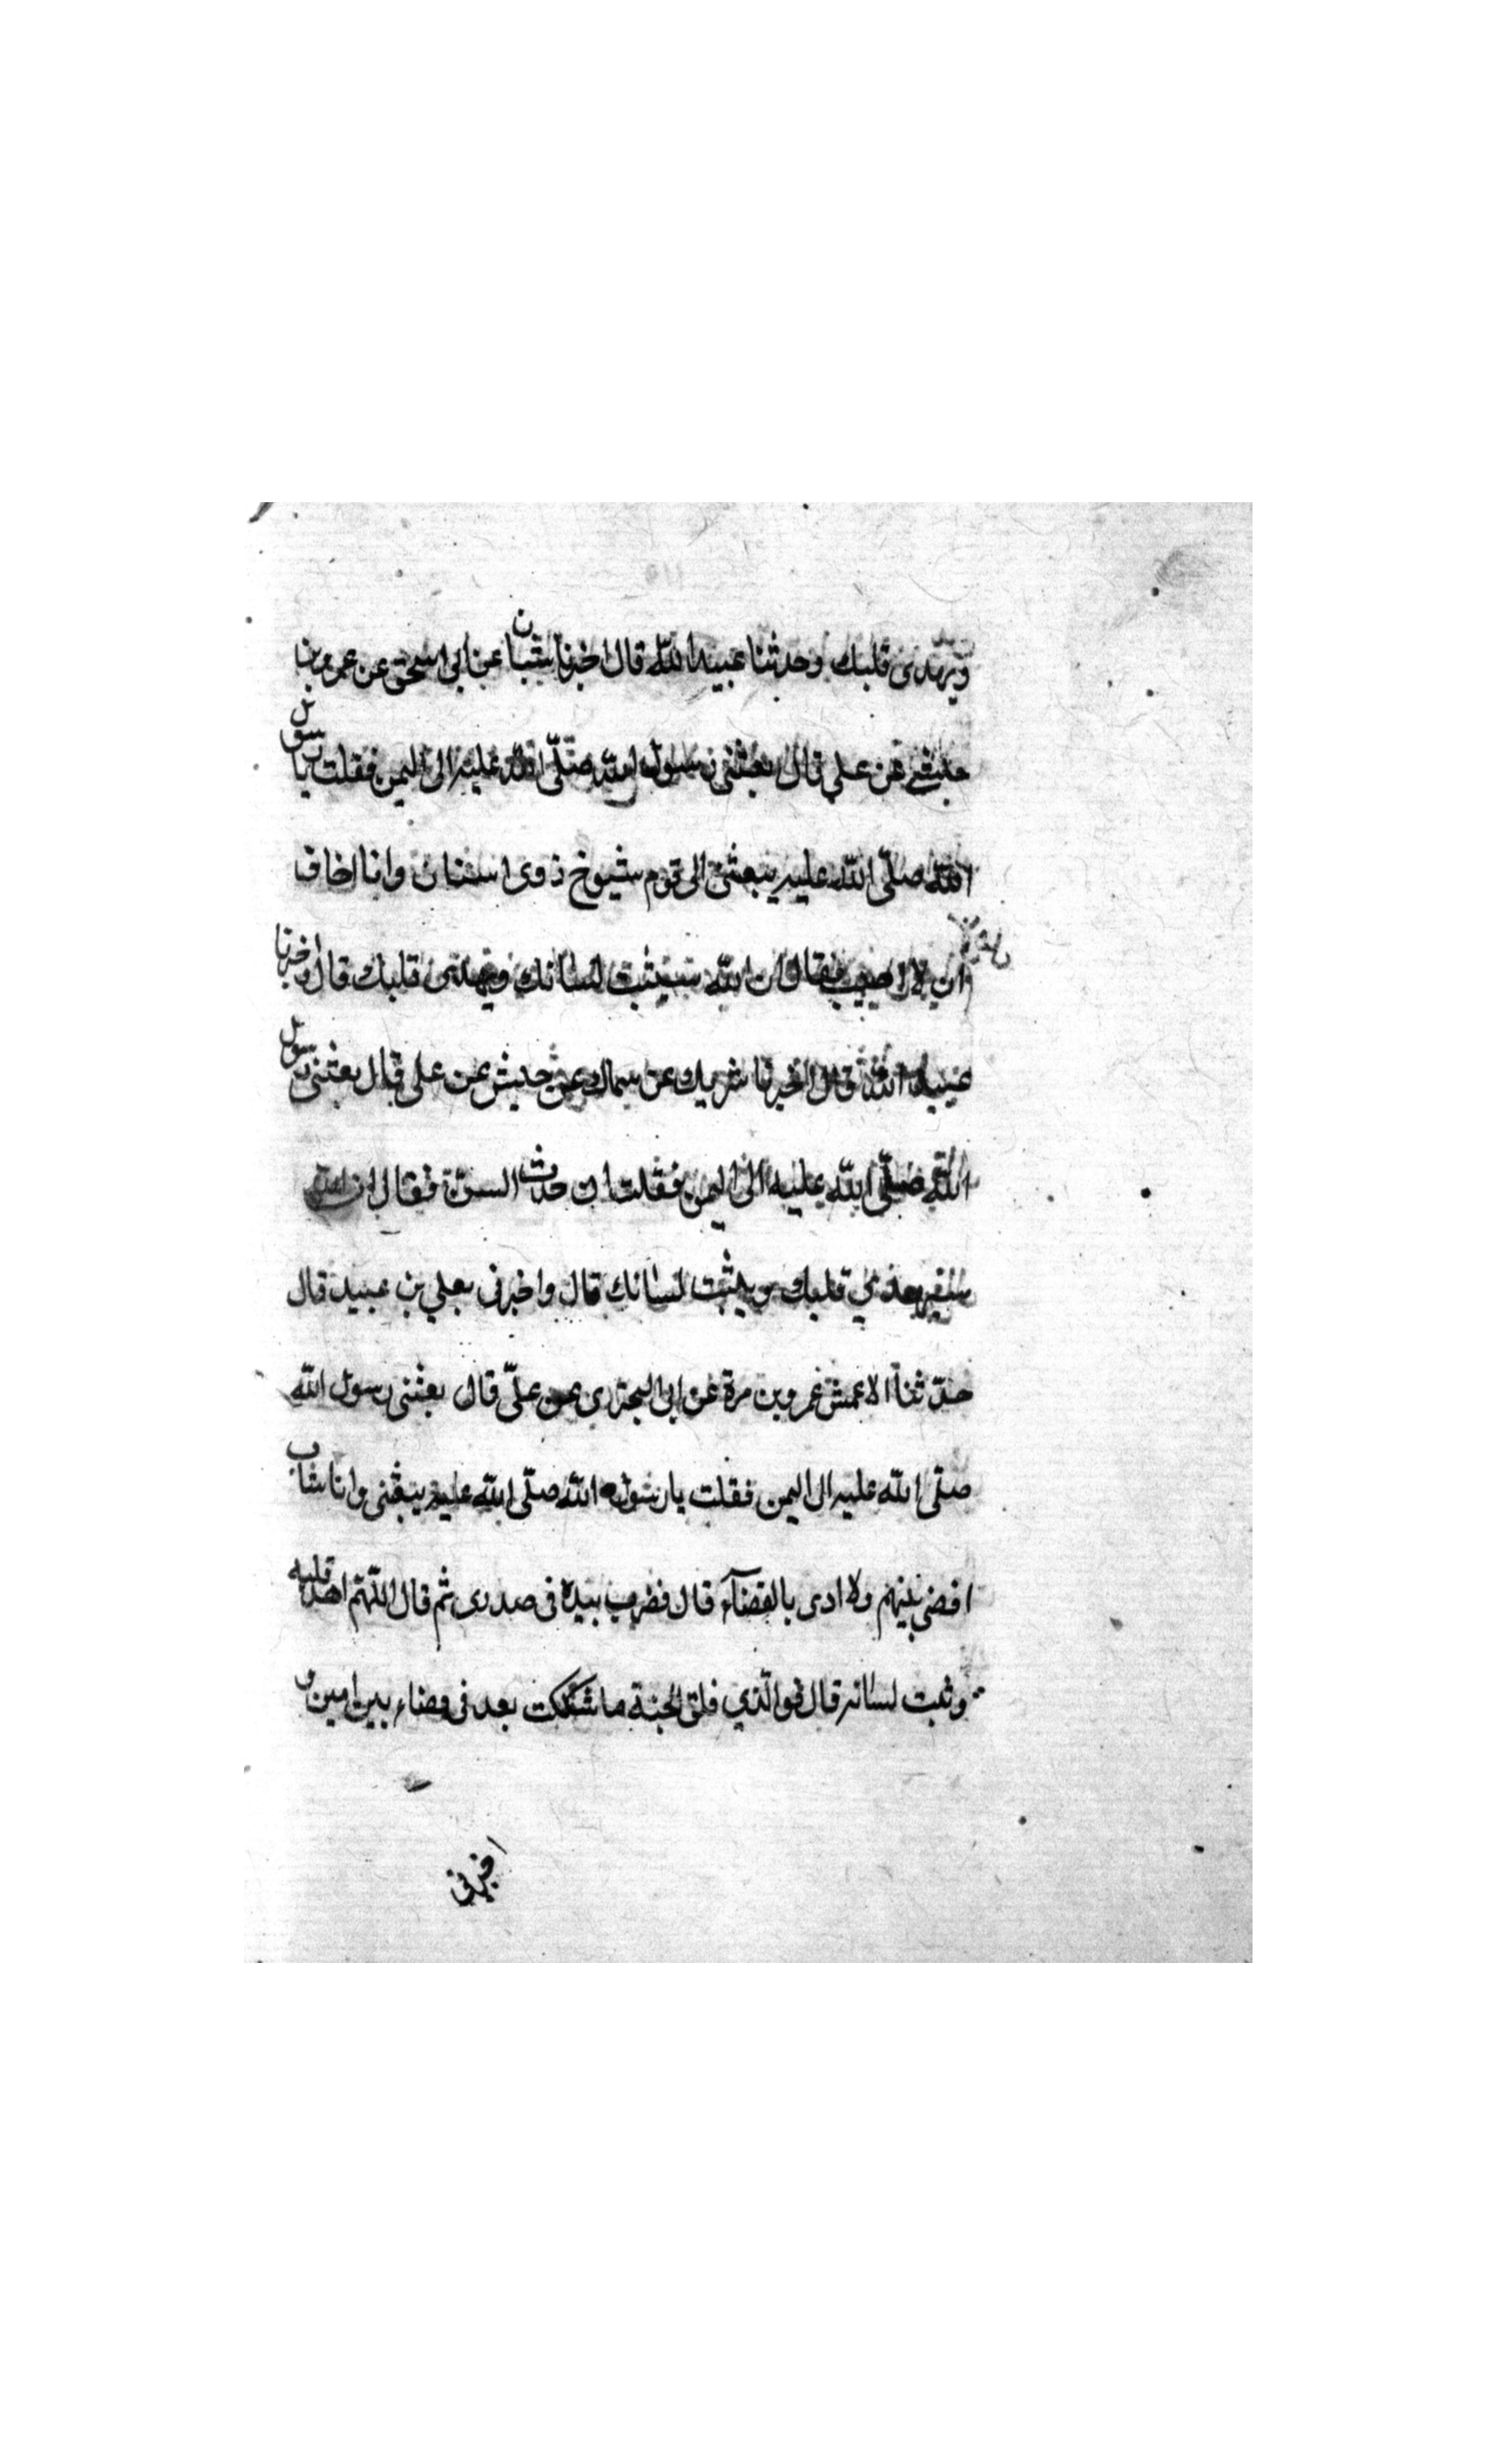 ويهدى قلبك وحدثنا عبيد الله قال اخبرنا شيبان عن ابى اسحق عن عمرو بن
حبشى عن على قال بعثنى رسول الله صلّى الله عليه الى اليمن فقلت يا رسول
الله صلّى الله عليه يبعثنى الى قوم شيوخ ذوى اسنان وانا اخاف
ان لا اصيب فقال ان الله سيثبت لسانك ويهدى قلبك قال واخبرنا
عبيد الله قال اخبرنا شريك عن سماك عن حنيش عن على قال بعثنى رسول
الله صلّى الله عليه الى اليمن فقلت ان حدث السن فقال ان الله
قلبك ويثبت لسانك قال واخبرنى يعلى بن عبيد قال
حدّثنا الاعمش عمرو بن مرة عن ابى البخترى عن علىّ قال بعثنى رسول الله
صلّى الله عليه الى اليمن فقلت يا رسول الله صلّى الله عليه يبعثنى وانا شاب
اقضى بينهم ولا ادرى بالقضآء قال فضرب بيده فى صدرى ثم قال اللّهمّ اهد قلبه
وثبت لسانه قال فوالّذي فلق الحبة ما شككت بعد فى قضاء بين
اخبرنى